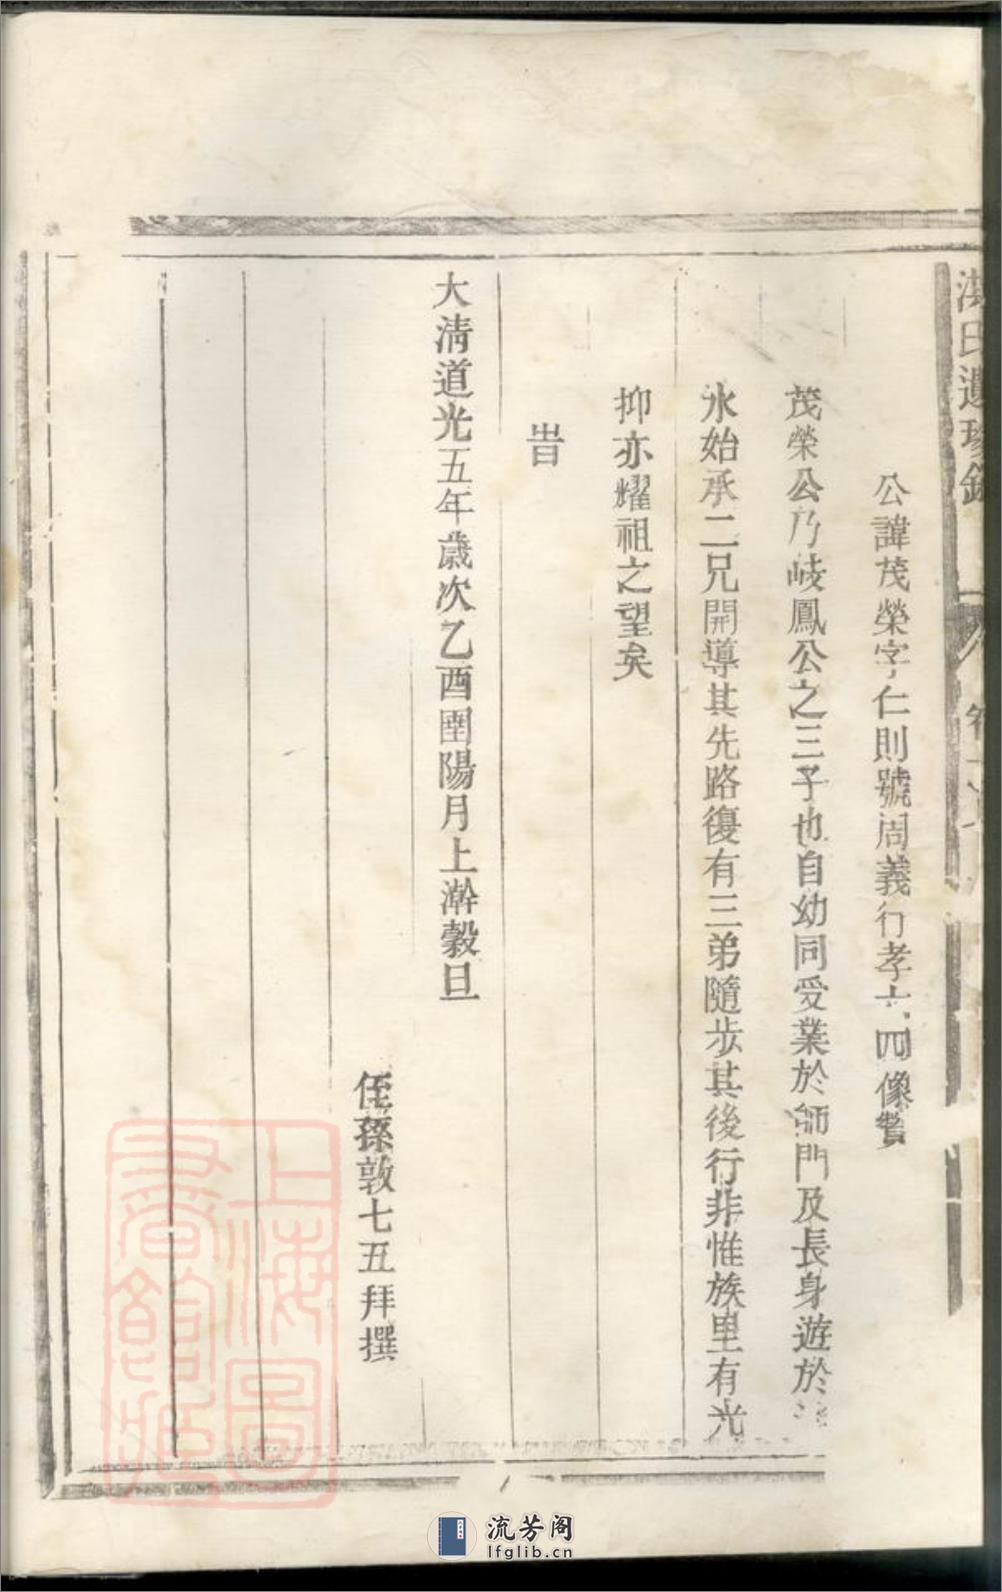 氏遺珍
公諱茂榮字仁則號周義行孝六四像贊
茂榮公乃岐鳳公之三子也自幼同受業於師門及長身遊於
氷始承二兄開導其先路復有三弟隨步其後行非惟族里有光
抑亦耀祖之望矣
旹
大清道光五年歲次乙酉圉陽月上澣穀旦
侄孫敦七五拜撰
上海圖書館藏
流芳阁
lfglib.cn